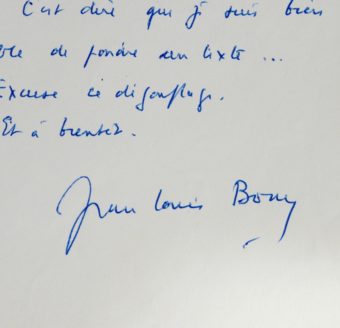 C'est dire que je suis bien
ble de pondre un texte ...
Excuse ce dégonflage.
Et à bientôt.
Jean Louis Bory